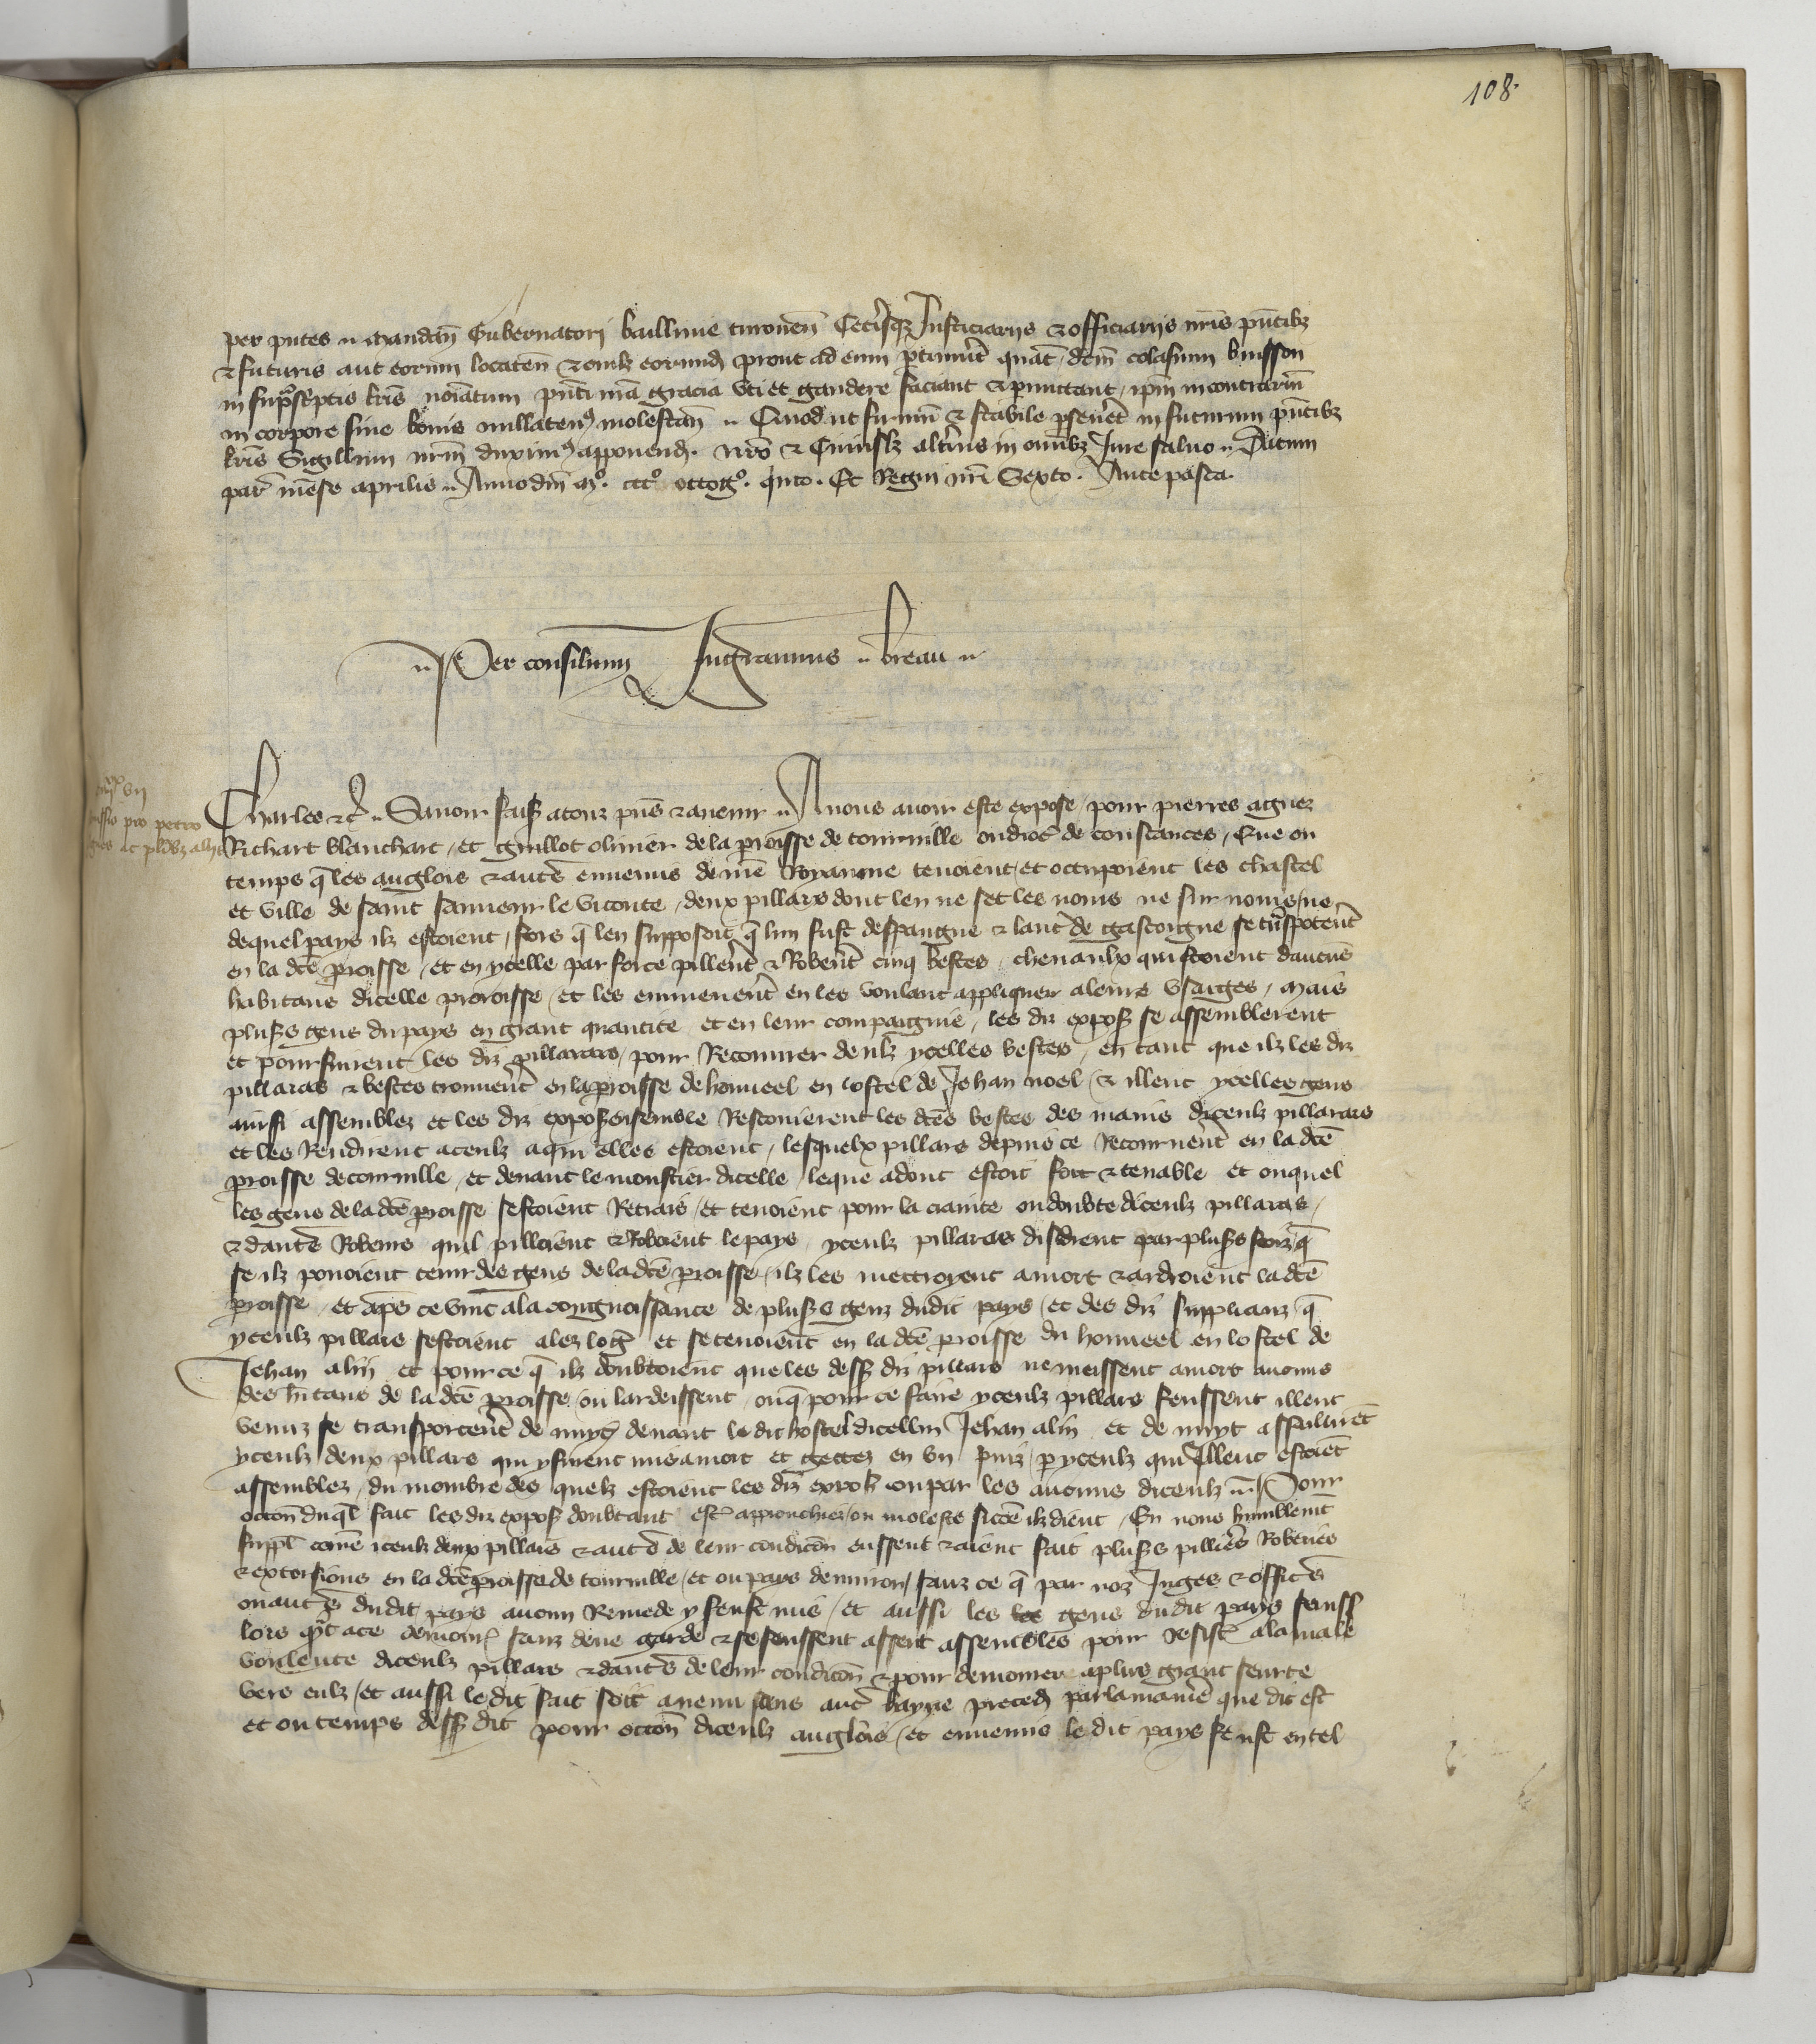 108
per pntes .. mandan̄ Gubernatori baillivie turonen̄ Ceterisqz Justiciariis & officiariis nr̄is pn̄tibz
& futuris aut eorum locaten̄ & eorumd prout ad eum pertinuerit quat dc̄m colasinum buisson
in supͣscriptis lr̄is noīatum pn̄ti nr̄a gracia uti et gaudere faciant & permittant, ip̄m in contrariū
in corpore sive bonis nullatenꝰ molestan̄ .. Quod ut firmū & stabile perseveret in futurum pn̄tibz
lr̄is Sigillum nr̄m duximꝰ apponend. nr̄o & Cuiuslz alterius in omībz Jure salvo .. Datum
par̄ mēse aprilis .. Anno dn̄i mº. cccº octogº. qnto. Et Regni nr̄i Sexto. Ante pasca.
.. Per consilium Ingrannus .. breau ..
Charles &c̄ .. Savoir faisz a touz pn̄s & avenir .. A nous avoir este expose, pour pierres agnez
Richart blanchart, et guillot olivier de la proisse de tourville ou dioc̄ de constances, Que ou
temps q̄ les anglois & autr̄s ennemis de nr̄e Royaume tenoient et occupoient les chastel
et ville de saint sauveur le viconte, deux pillars dont len ne set les noms ne surnoms ne
de quel pays ilz estoient, fors q̄ len supposoit q̄ lun fust despaugne & laut̄ de gascoigne se transporter̄t
en la dc̄e proisse, et en ycelle par force pillerēt & Roberēt cinq bestes chevaulx qui estoient daucūs
habitans dicelle proroisse et les emmenerēt en les voulant appliquer a leurs usaiges, Mais
plusrs gens du pays en grant quantite et en leur compaignie, les diz exposz se assemblerent
et poursuirent les diz pillarars, pour Recouvrer deulz ycelles bestes, en tant que ilz les diz
pillaras & bestes trouverēt en la proisse de homeel en lostel de Jehan noel & illeuc ycelles gens
ainsi assemblez et les diz exposz ensemble Rescouirent les dc̄es bestes des mains diceulz pillarars
et les Rendirent a ceulz a qui elles estoient, lesquelx pillars depuis ce Retournerēt en la dc̄e
proisse de tourville, et devant le monstier dicelle leque adont estoit fort & tenable et ouquel
les gens de la dc̄e proisse sestoient Retrais et tenoient pour la crainte ou doubte diceulz pillaras,
& dautr̄s Robeurs quil pilloient & Roboient le pays, yceulz pillaras disdrent par plusrs foiz q̄
se ilz povoient tenir des gens de la dc̄e proisse, ilz les mettroyent a mort & ardroient la dc̄e
proisse, et ap̄s ce vint a la congnoissance de plusrs gens dudit pays et des diz supplianz q̄
yceulz pillars sestoient alez logr̄ et se tenoient en la dc̄e proisse du homeel en lostel de
Jehan alin et pour ce q̄ ilz doubtoient que les dessz diz pillars ne meissent a mort aucuns
des hītans de la dc̄e proisse, ou lardeissent, ou q̄ pour ce faire yceulz pillars feussent illeuc
venuz se transporterēt de nuyt devant le dit hostel dicellui Jehan alin et de nuyt assaillirēt
yceulz deux pillars qui y furent mis a mort et gettez en un puiz, p yceulz qui Illeuc estoiēt
assemblez, du nombre des quelz estoient les diz exposz ou par les aucuns diceulz .. Pour
occon̄ duql̄ fait les diz exposz doubtant estr̄ approuchiez ou moleste sicōe ilz dient, En nous humblemt̄
suppl̄ cōme iceulz deux pillars & autrs de leur condicōn eussent & aient fait plusrs pilliers Roberies
& extorsions en la dc̄e proisse de tourville, et ou pays denviron, sanz ce q̄ par noz Juges & officr̄s
ou autr̄s dudit pays aucun Remede y feust mis, et aussi les gens dudit pays feuss
lors qt a ce demour̄ sanz deue garde & se feussent assent assemblés pour Resistr̄ a la male
voulente diceulz pillars & dautr̄s de leur condicōn & pour demourer a plus grant seurte
vers eulz, et aussi le dit fait soit avenu sens autr̄ hayne preced par la maniē que dit est
et ou temps dessz dit pour occon̄ diceulz anglois et ennemis le dit pays feust en tel